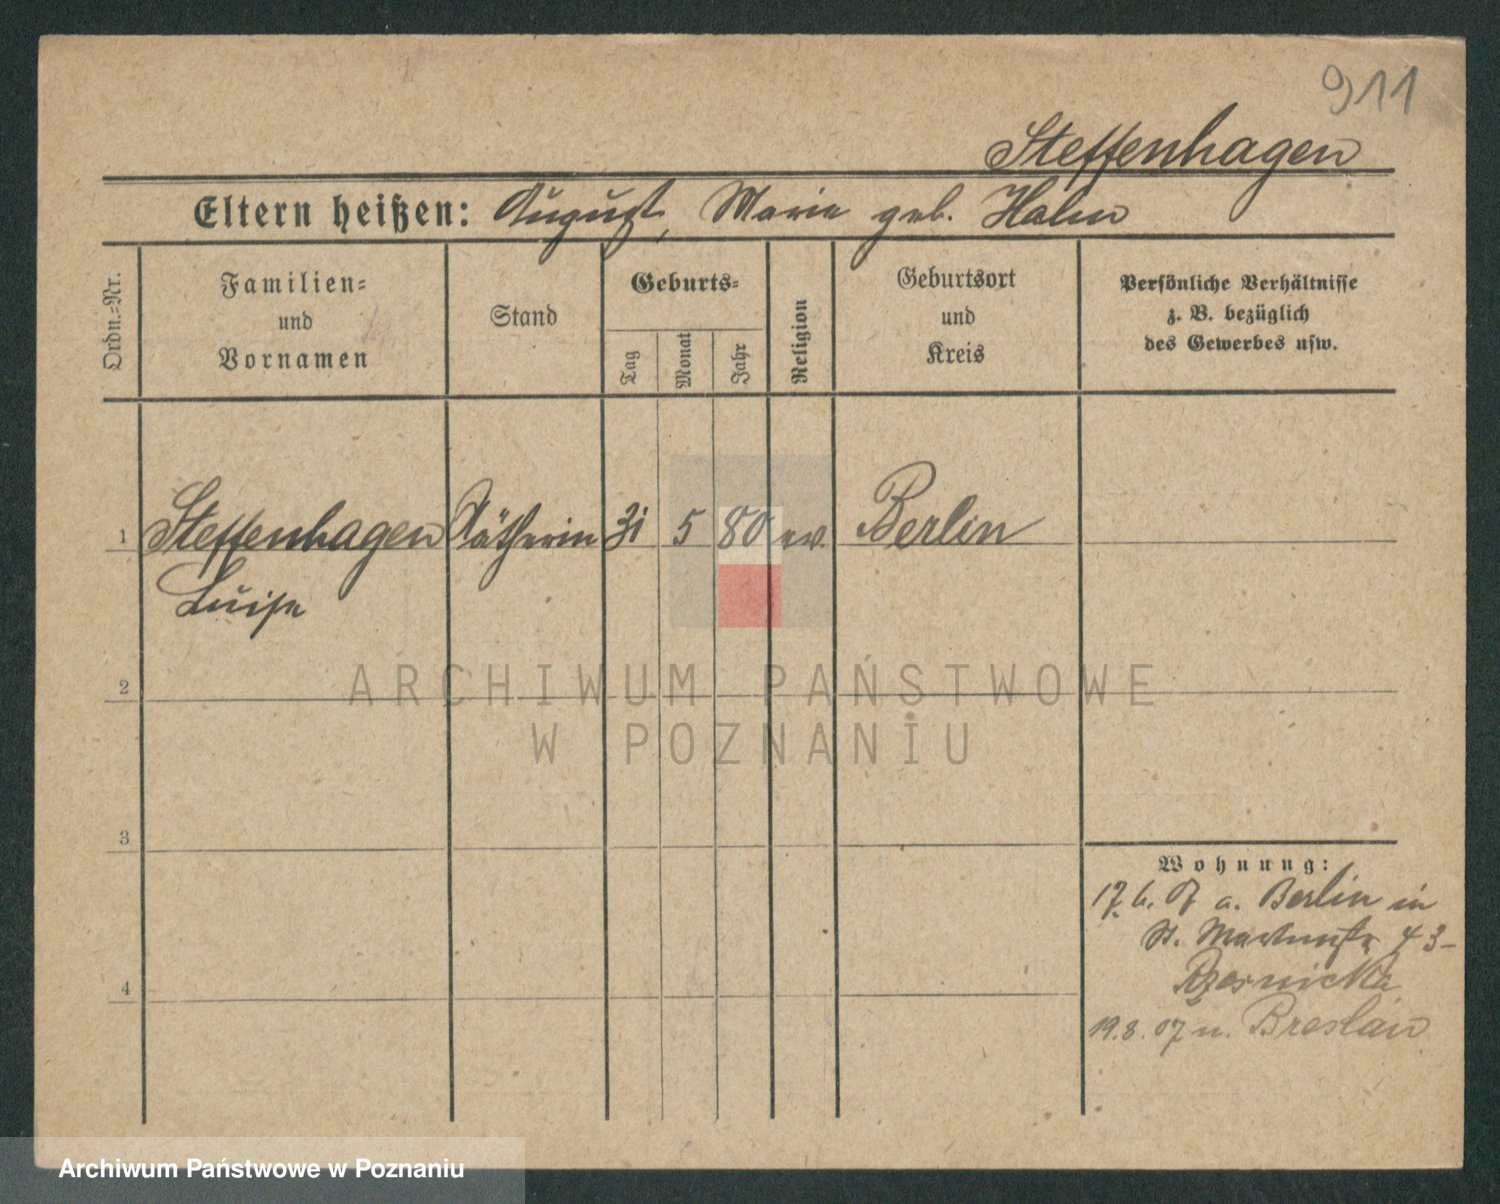 911
Steffenhagen
Eltern heißen: August, Marie geb. Hahn
Ordn.=Nr.
Familien=
und
Vornamen
Stand
Geburts=
Tag
Monat
Jahr
Religion
Geburtsort
und
Kreis
Persönliche Verhältnisse
z. B. bezüglich
des Gewerbes usw.
1 Steffenhagen 31 5 80 ev. Berlin
Luise
2
3
4
Wohnung:
17. 6. 07 a. Berlin in
St. Martinstr 43
19.8.07 n. Breslau
ARCHIWUM PAŃSTWOWE
W POZNANIU
Archiwum Państwowe w Poznaniu